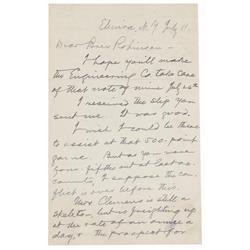 Elmira, N.Y. July 11.
Dear Bro. Robinson—
I hope you'll make
the Engineering Co take care
of that note of mine July 26th
I received the slip you
sent me. It was good.
I wish I could be there
to assist at that 500-point
game. But as you were
four-fifths out at last ac-
counts, I suppose the con-
flict is over before this.
Mrs. Clemens is still a
skeleton, but is freighting up
at the rate of an ounce a
day, & the prospect for